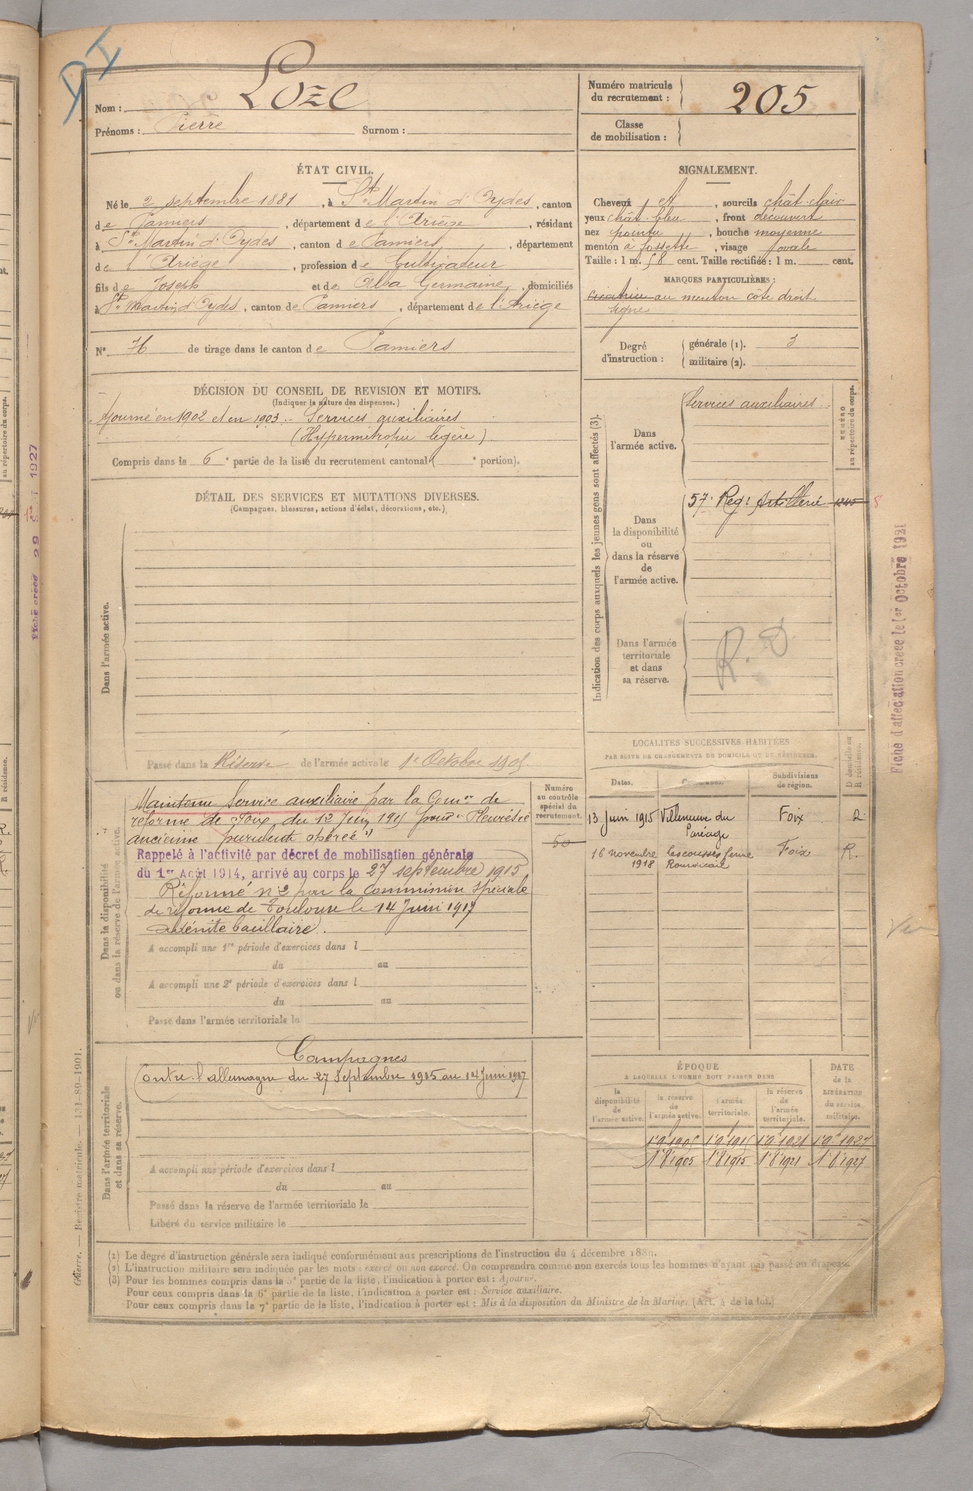 DI
Nom : Loze
Prénoms : Pierre Surnom :
Numéro matricule du recrutement : 205
Classe de mobilisation :
ÉTAT CIVIL.
Né le 2 septembre 1881, à St Martin d'Oydes, canton
de Pamiers, département de l'Ariège, résidant
à St Martin d'Oydes, canton de Pamiers, département
de l'Ariège, profession de Cultivateur
fils de Joseph et de Alba Germaine, domiciliés
à St Martin d'Oydes, canton de Pamiers, département de l'Ariège
N° 76 de tirage dans le canton de Pamiers
SIGNALEMENT.
Cheveux et, sourcils chât-clair
yeux chât-bleu, front découvert
nez pointu, bouche moyenne
menton à fossette, visage ovale
Taille : 1 m. 58 cent. Taille rectifiée : 1 m. cent.
MARQUES PARTICULIÈRES :
Cicatrice au menton côté droit
signe
Degré d'instruction : générale (1). 3
militaire (2).
DÉCISION DU CONSEIL DE REVISION ET MOTIFS.
(Indiquer la nature des dispenses.)
Ajourné en 1902 et en 1903. Services auxiliaires
(Hypermétropie légère)
Compris dans la 6e partie de la liste du recrutement cantonal ( e portion).
DÉTAIL DES SERVICES ET MUTATIONS DIVERSES.
(Campagnes, blessures, actions d'éclat, décorations, etc.)
Dans l'armée active.
Passé dans la Réserve de l'armée active le 1er Octobre 1905
Indication des corps auxquels les jeunes gens sont affectés (3).
NUMÉRO au répertoire du corps.
Dans l'armée active.
Services auxiliaires
Dans la disponibilité ou dans la réserve de l'armée active.
57e Reg: Artillerie
8
Dans l'armée territoriale et dans sa réserve.
R. D
Dans la disponibilité ou dans la réserve de l'armée active.
Maintenu Service auxiliaire par la Comon de
réforme de Foix du 12 Juin 1915 pour "Pleurésie
ancienne purulente opérée"
Rappelé à l'activité par décret de mobilisation générale
du 1er Août 1914, arrivé au corps le 27 septembre 1915
Réformé n° 2 par la Commission spéciale
de réforme de Toulouse le 14 Juin 1917
adénite bacillaire.
A accompli une 1re période d'exercices dans l
du au
A accompli une 2e période d'exercices dans l
du au
Passé dans l'armée territoriale le
Numéro au contrôle spécial du recrutement.
60
LOCALITÉS SUCCESSIVES HABITÉES
PAR SUITE DE CHANGEMENTS DE DOMICILE OU DE RÉSIDENCE.
Dates. Subdivisions de région. D domicile ou R résidence.
13 Juin 1915 Villeneuve du Paréage Foix
16 novembre 1918 Foix R.
Dans l'armée territoriale et dans sa réserve.
Campagnes
Contre l'allemagne du 27 Septembre 1915 au 14 Juin 1917
A accompli une période d'exercices dans l
du au
Passé dans la réserve de l'armée territoriale le
Libéré du service militaire le
ÉPOQUE
A LAQUELLE L'HOMME DOIT PASSER DANS
la disponibilité de l'armée active. la réserve de l'armée active. l'armée territoriale. la réserve de l'armée territoriale. DATE de la LIBÉRATION du service militaire.
1 8 1905 1 8 1915 1 8 1921 1 8 1927
(1) Le degré d'instruction générale sera indiqué conformément aux prescriptions de l'instruction du 4 décembre 1889.
(2) L'instruction militaire sera indiquée par les mots : exercé ou non exercé. On comprendra comme non exercés tous les hommes n'ayant pas passé au drapeau.
(3) Pour les hommes compris dans la 5e partie de la liste, l'indication à porter est : Ajourné.
Pour ceux compris dans la 6e partie de la liste, l'indication à porter est : Service auxiliaire.
Pour ceux compris dans la 7e partie de la liste, l'indication à porter est : Mis à la disposition du Ministre de la Marine. (Art. 4 de la loi.)
Guerre. — Registre matricule. — 131-89-1901.
Fiche d'affectation créée le 1er Octobre 1921